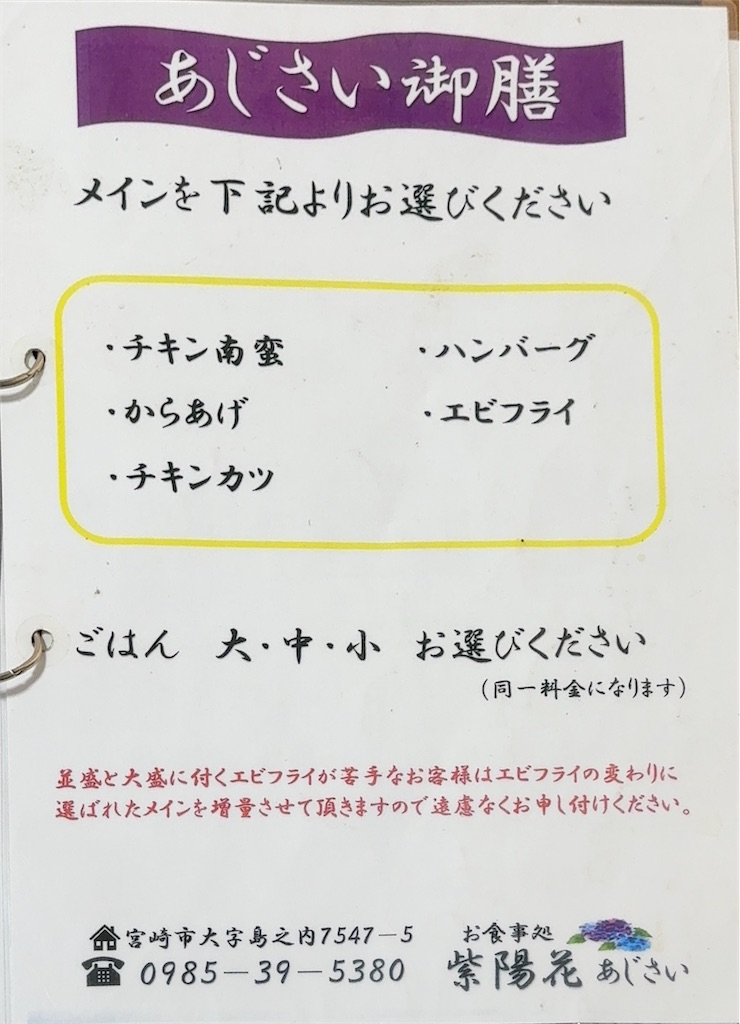 あじさい御膳
メインを下記よりお選びください
・チキン南蛮
・からあげ
・チキンカツ
・ハンバーグ
・エビフライ
ごはん 大・中・小 お選びください
(同一料金になります)
並盛と大盛に付くエビフライが苦手なお客様はエビフライの変わりに
選ばれたメインを増量させて頂きますので遠慮なくお申し付けください。
宮崎市大字島之内7547－5
0985－39－5380
お食事処
紫陽花 あじさい